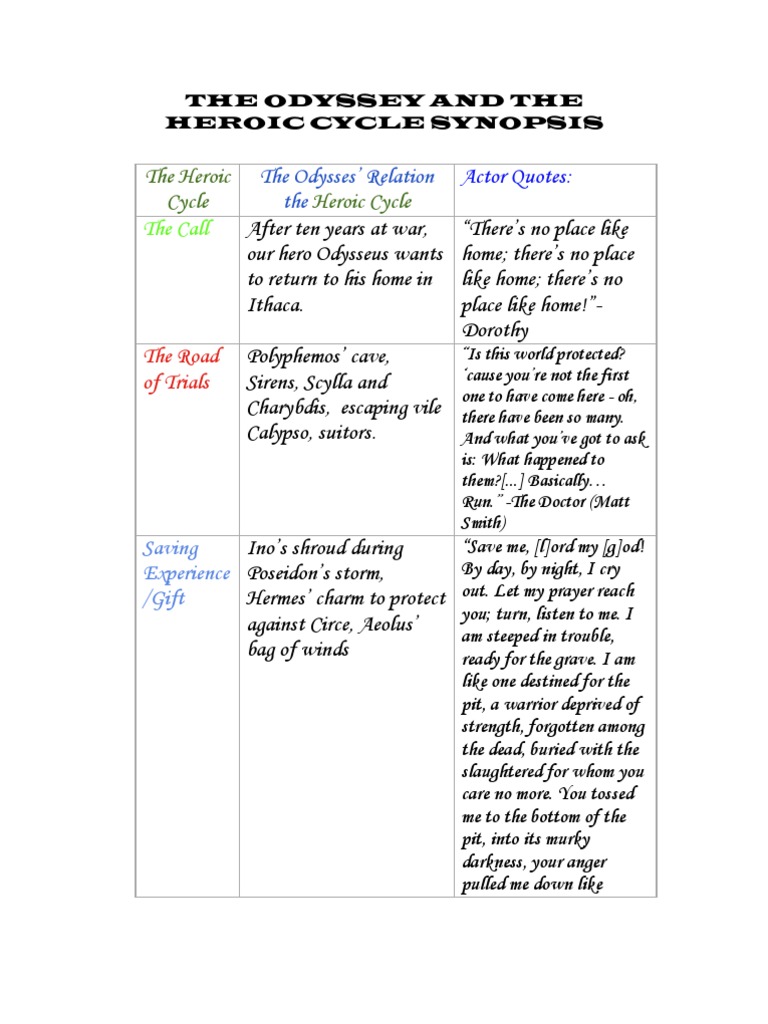 THE ODYSSEY AND THE
HEROIC CYCLE SYNOPSIS
The Heroic
Cycle
The Odysses' Relation
the Heroic Cycle
Actor Quotes:
The Call
After ten years at war,
our hero Odysseus wants
to return to his home in
Ithaca.
“There's no place like
home; there's no place
like home; there's no
place like home!”-
Dorothy
The Road
of Trials
Polyphemos' cave,
Sirens, Scylla and
Charybdis, escaping vile
Calypso, suitors.
“Is this world protected?
'cause you're not the first
one to have come here - oh,
there have been so many.
And what you've got to ask
is: What happened to
them?[...] Basically…
Run.” -The Doctor (Matt
Smith)
Saving
Experience
/Gift
Ino's shroud during
Poseidon's storm,
Hermes' charm to protect
against Circe, Aeolus'
bag of winds
“Save me, [l]ord my [g]od!
By day, by night, I cry
out. Let my prayer reach
you; turn, listen to me. I
am steeped in trouble,
ready for the grave. I am
like one destined for the
pit, a warrior deprived of
strength, forgotten among
the dead, buried with the
slaughtered for whom you
care no more. You tossed
me to the bottom of the
pit, into its murky
darkness, your anger
pulled me down like